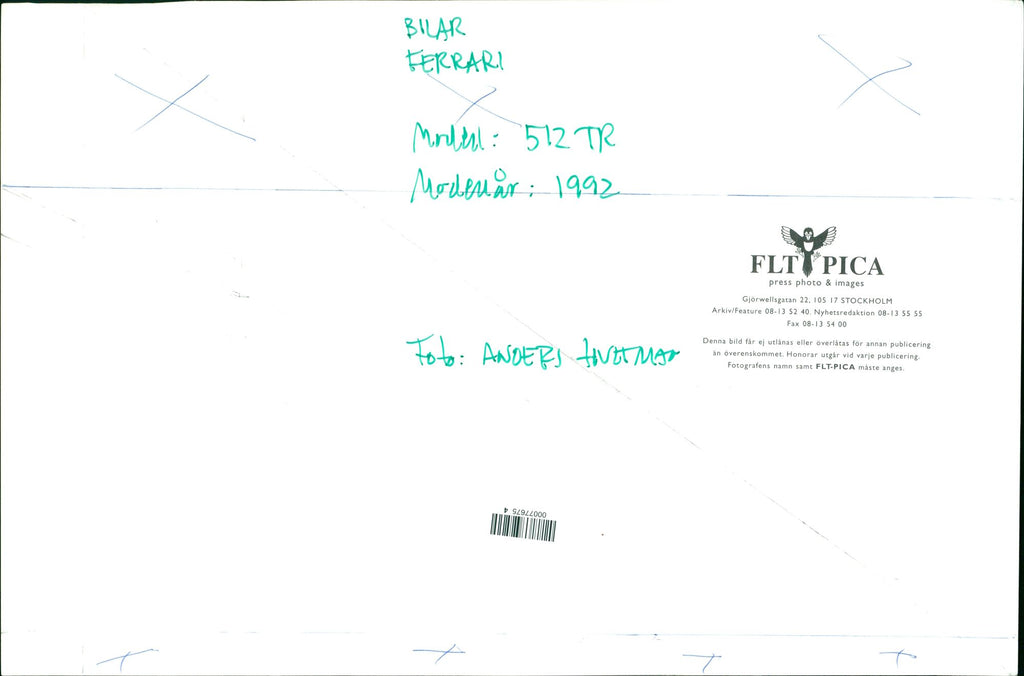 BILAR
FERRARI
Modell: 512 TR
Modellår: 1992
FLT PICA
press photo & images
Gjörwellsgatan 22, 105 17 STOCKHOLM
Arkiv/Feature 08-13 52 40. Nyhetsredaktion 08-13 55 55
Fax 08-13 54 00
Denna bild får ej utlånas eller överlåtas för annan publicering
än överenskommet. Honorar utgår vid varje publicering.
Fotografens namn samt FLT-PICA måste anges.
Foto: ANDERS
00077675 4